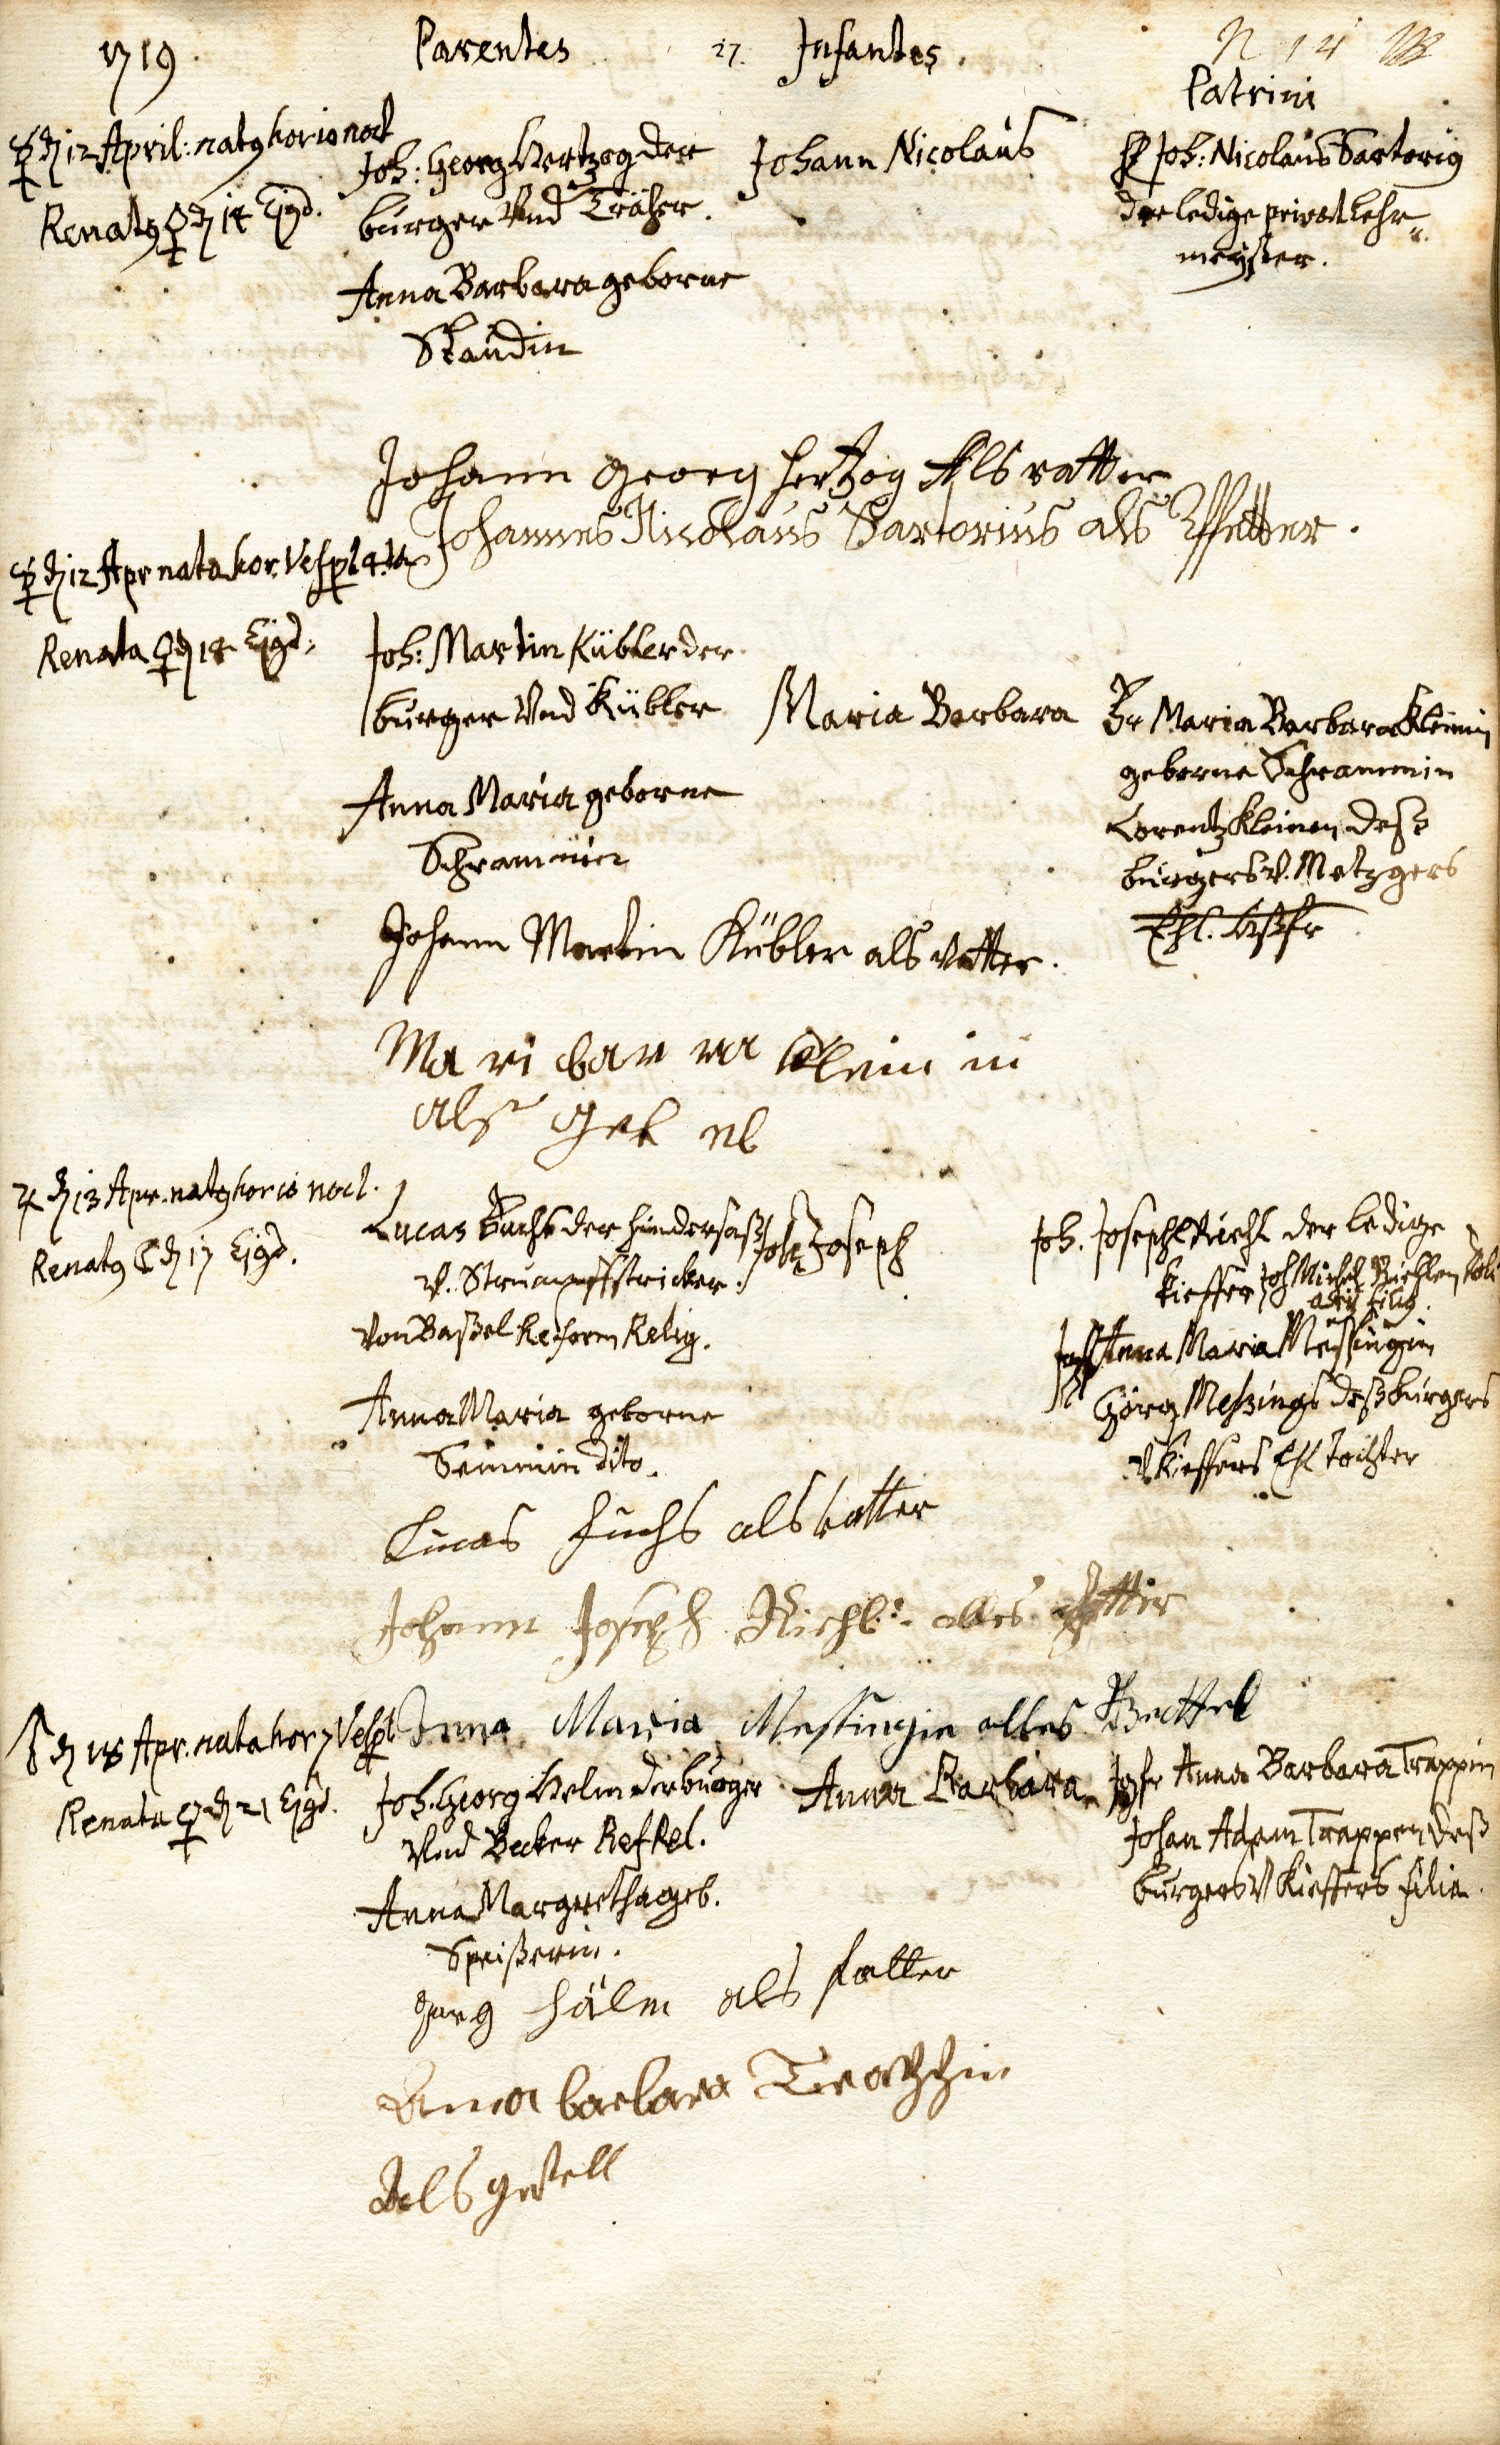 1719.
Parentes
27.
Infantes.
N 14
Patrini
☿ d 12 April: natq hor 10 noct
Renatq ♀ d 14 Ejqd.
Joh: Georg Hertzog der
burger Vnd Träher.
Anna Barbara geborne
Staudin
Johann Nicolaus
H Joh: Nicolaus Sartoriq
der ledige privat lehr„
meyster.
Johann Georg Hertzog Als vatter
Johannes Nicolaus Sartorius als Pfetter.
☿ d 12 Apr nata hor. Vesp 4.ta
Renata ♀ d 14 Ejqd:
Joh: Martin Kübler der
burger Vnd Kübler
Anna Maria geborne
Schrammin
Maria Barbara
Fr Maria Barbara Kleinin
geborne Schrammin
Lorentz Kleinen deß
burgers v. Metzgers
Ehl.
Johann Martin Kübler als vatter.
Ma ri bar ra Klein in
alß Get el
♃ d 13 Apr. natq hor 10 noct.
Renatq ☾ d 17 Ejqd.
Lucas Fuchs der hindersaß
v. Strumpffstricker.
Von Baßel Reform Relig.
Anna Maria geborne
dito.
Joh. Joseph
Joh. Joseph Riehl der ledige
Kieffer Joh Michel Riehlen
filiq.
Jgfr Anna Maria Messingin
Görg Meßings deß burgers
v Kieffers Ehl Tochter
Lucas Fuchs als vatter
Johann Joseph Riehl: alles Pfetter
Anna Maria Messingin alles Gettel
d 18 Apr. nata hor 7 Vesp
Renata ♀ d 21 Ejqd.
Joh. Georg Helm der burger
Vnd Becker Ref Rel.
Anna Margretha geb.
Speißerin.
Anna Barbara
Jgfr Anna Barbara Trappin
Johan Adam Trappen deß
burgers v Kieffers filia.
Jerg hälm als fatter
Anna barbara Trappin
Als gettell